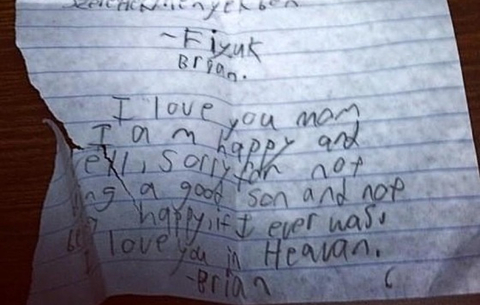 ~Fiyuk
Brian.
I love you mom
I am happy and
ell, sorry for not
ng a good son and not
happy, if I ever was.
I love you in Heavan.
-Brian